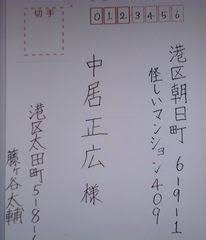 切手
0123456
港区朝日町 6-9-1
怪しいマンション409
中居正広 様
港区太田町5-8-
藤ヶ谷太輔